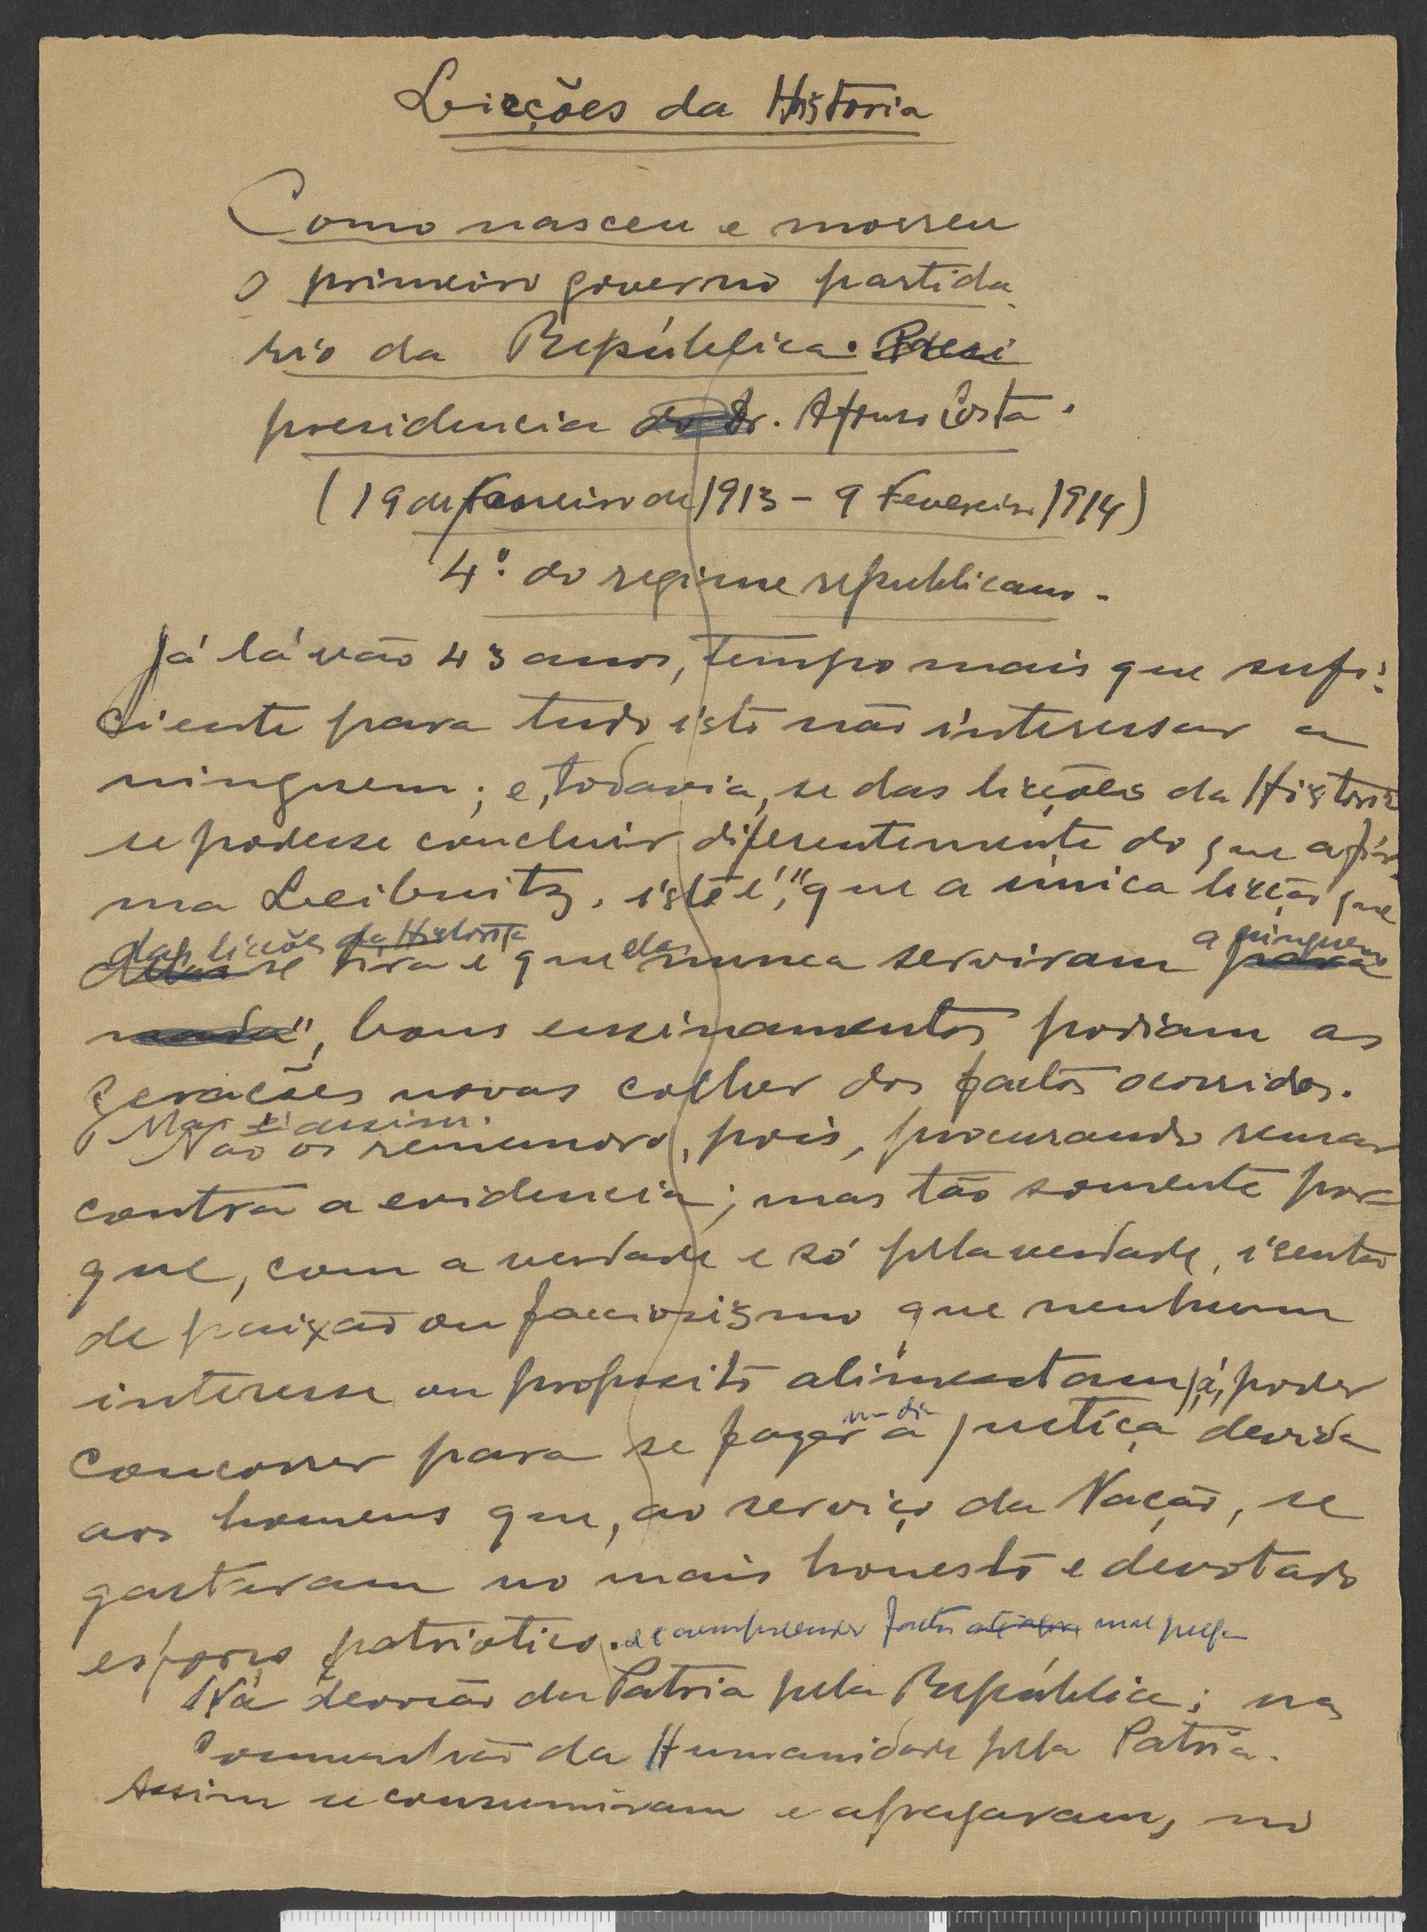 Licções da Historia
Como nasceu e morreu
o primeiro governo partida
rio da República. Presi
presidencia do Dr. Afonso Costa.
(19 de Janeiro de 1913 - 9 Fevereiro 1914)
4º. do regime republicano.
Já lá vão 43 anos, tempo mais que sufi-
ciente para tudo isto não interessar a
ninguem; e, todavia, se das licções da Historia
se podesse concluir diferentemente do que afir-
ma Leibnitz, isto é, "que a única licção que
das licções da Historia
se tira é que elas nunca serviram a ninguem para
nada", bons ensinamentos podiam as
gerações novas colher dos factos ocorridos.
Mas é assim.
Não os rememoro, pois, procurando remar
contra a evidencia; mas tão somente por-
que, com a verdade e só pela verdade, isento
de paixão ou facciosismo que nenhum
interesse ou proposito alimentam já, poder
concorrer para se fazer um dia a justiça devida
aos homens que, ao serviço da Nação, se
gastaram no mais honesto e devotado
esforço patriotico. e compreender factos até agora mal
Na devoção da Patria pela República; na
comunhão da Humanidade pela Patria.
Assim se consumiram e apagaram, no